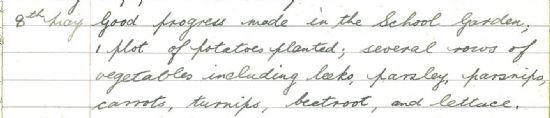 8th May Good progress made in the School Garden;
1 plot of potatoes planted; several rows of
vegetables including leeks, parsley, parsnips,
carrots, turnips, beetroot, and lettuce.